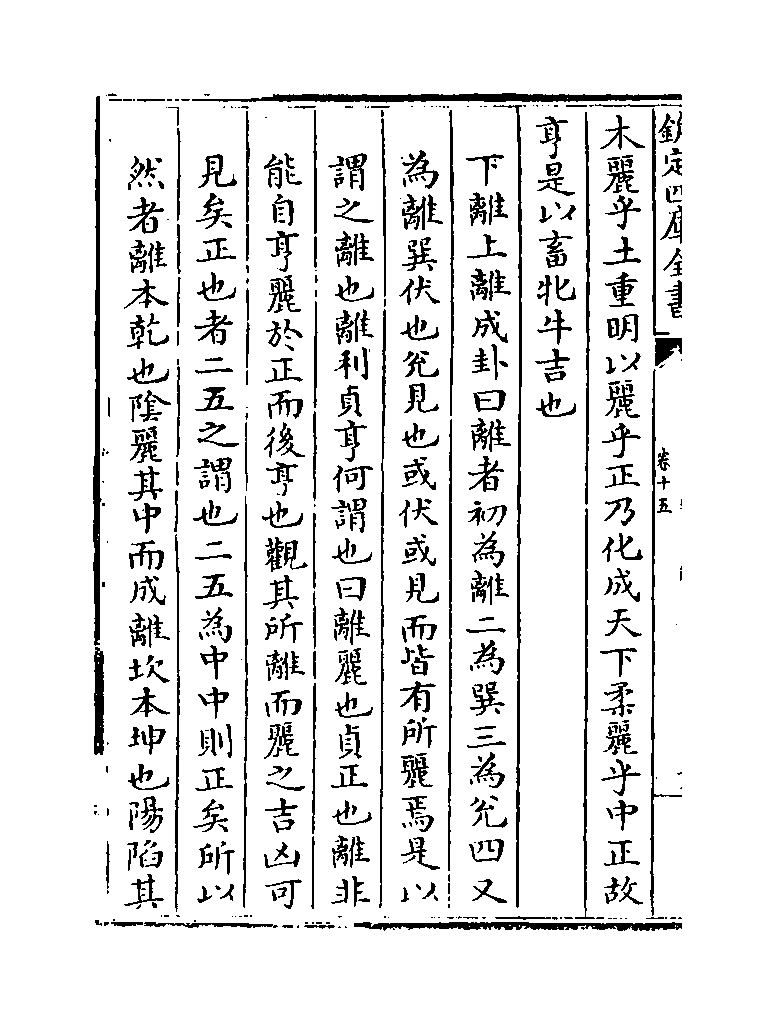 欽定四庫全書
卷十五
木麗乎土重明以麗乎正乃化成天下柔麗乎中正故
亨是以畜牝牛吉也
下離上離成卦曰離者初為離二為巽三為兊四又
為離巽伏也兊見也或伏或見而皆有所麗焉是以
謂之離也離利貞亨何謂也曰離麗也貞正也離非
能自亨麗於正而後亨也觀其所離而麗之吉凶可
見矣正也者二五之謂也二五為中中則正矣所以
然者離本乾也陰麗其中而成離坎本坤也陽陷其